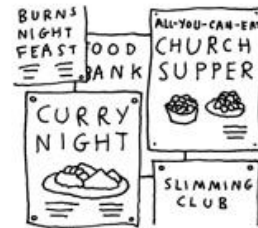 BURNS
NIGHT
FEAST
FOOD
BANK
ALL-YOU-CAN-EAT
CHURCH
SUPPER
CURRY
NIGHT
SLIMMING
CLUB